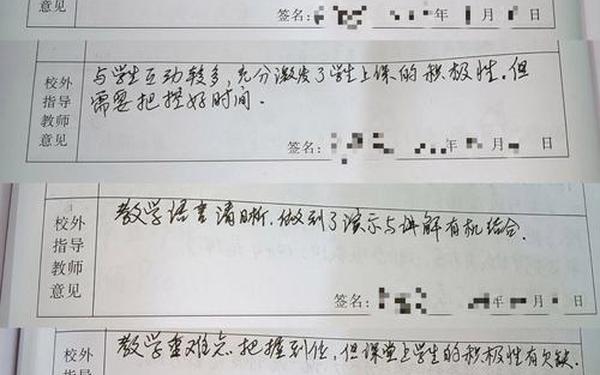 意见
签名： 月 日
校外
指导
教师
意见
与学生互动较多，充分激发了学生上课的积极性。但
需要把握好时间。
签名： 年 月 日
校外
指导
教师
意见
教学语言清晰，做到了演示与讲解有机结合。
签名： 年 月 日
校外
指导
教学重难点把握到位，但课堂上学生的积极性有欠缺.